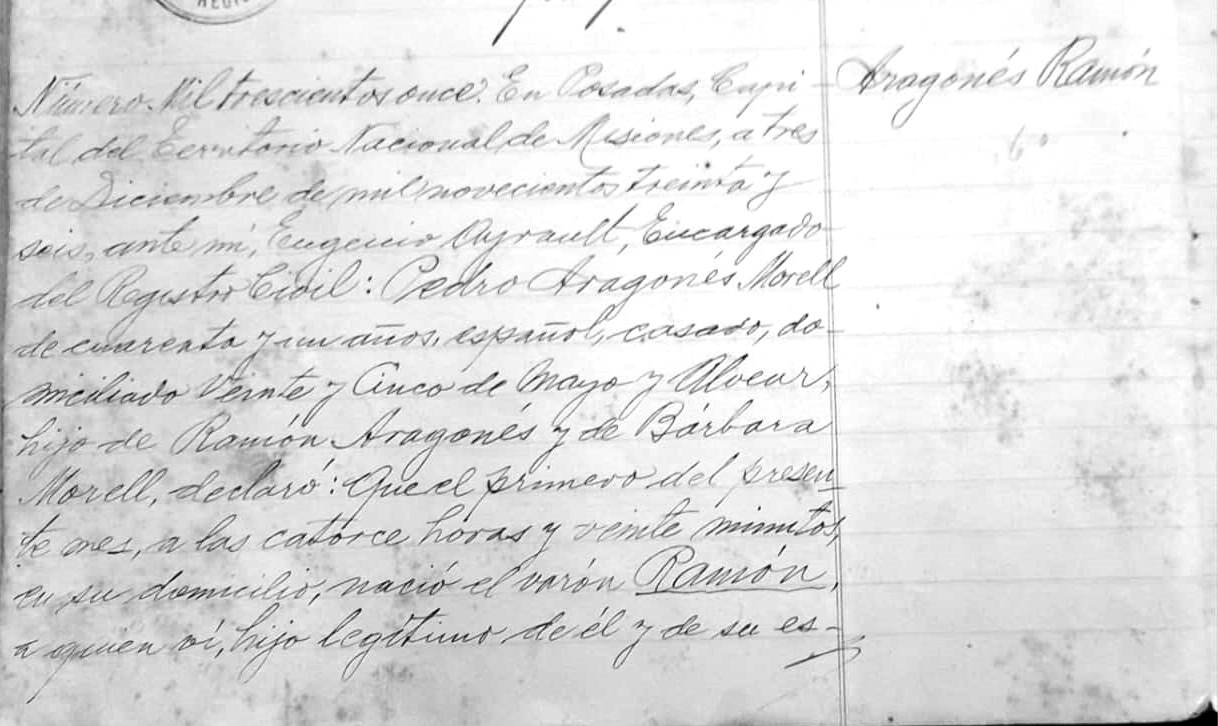 REGIS
Número Mil trescientos once. En Posadas, Capi-
tal del Territorio Nacional de Misiones, a tres
de Diciembre de mil novecientos treinta y
seis, ante mí, Eugenio Ayrault, Encargado
del Registro Civil: Pedro Aragonés Morell
de cuarenta y un años, español, casado, do-
miciliado Veinte y Cinco de Mayo y Alvear,
hijo de Ramón Aragonés y de Bárbara
Morell, declaró: Que el primero del presen-
te mes, a las catorce horas y veinte minutos,
en su domicilio, nació el varón Ramón,
a quien vi, hijo legítimo de él y de su es-
Aragonés Ramón